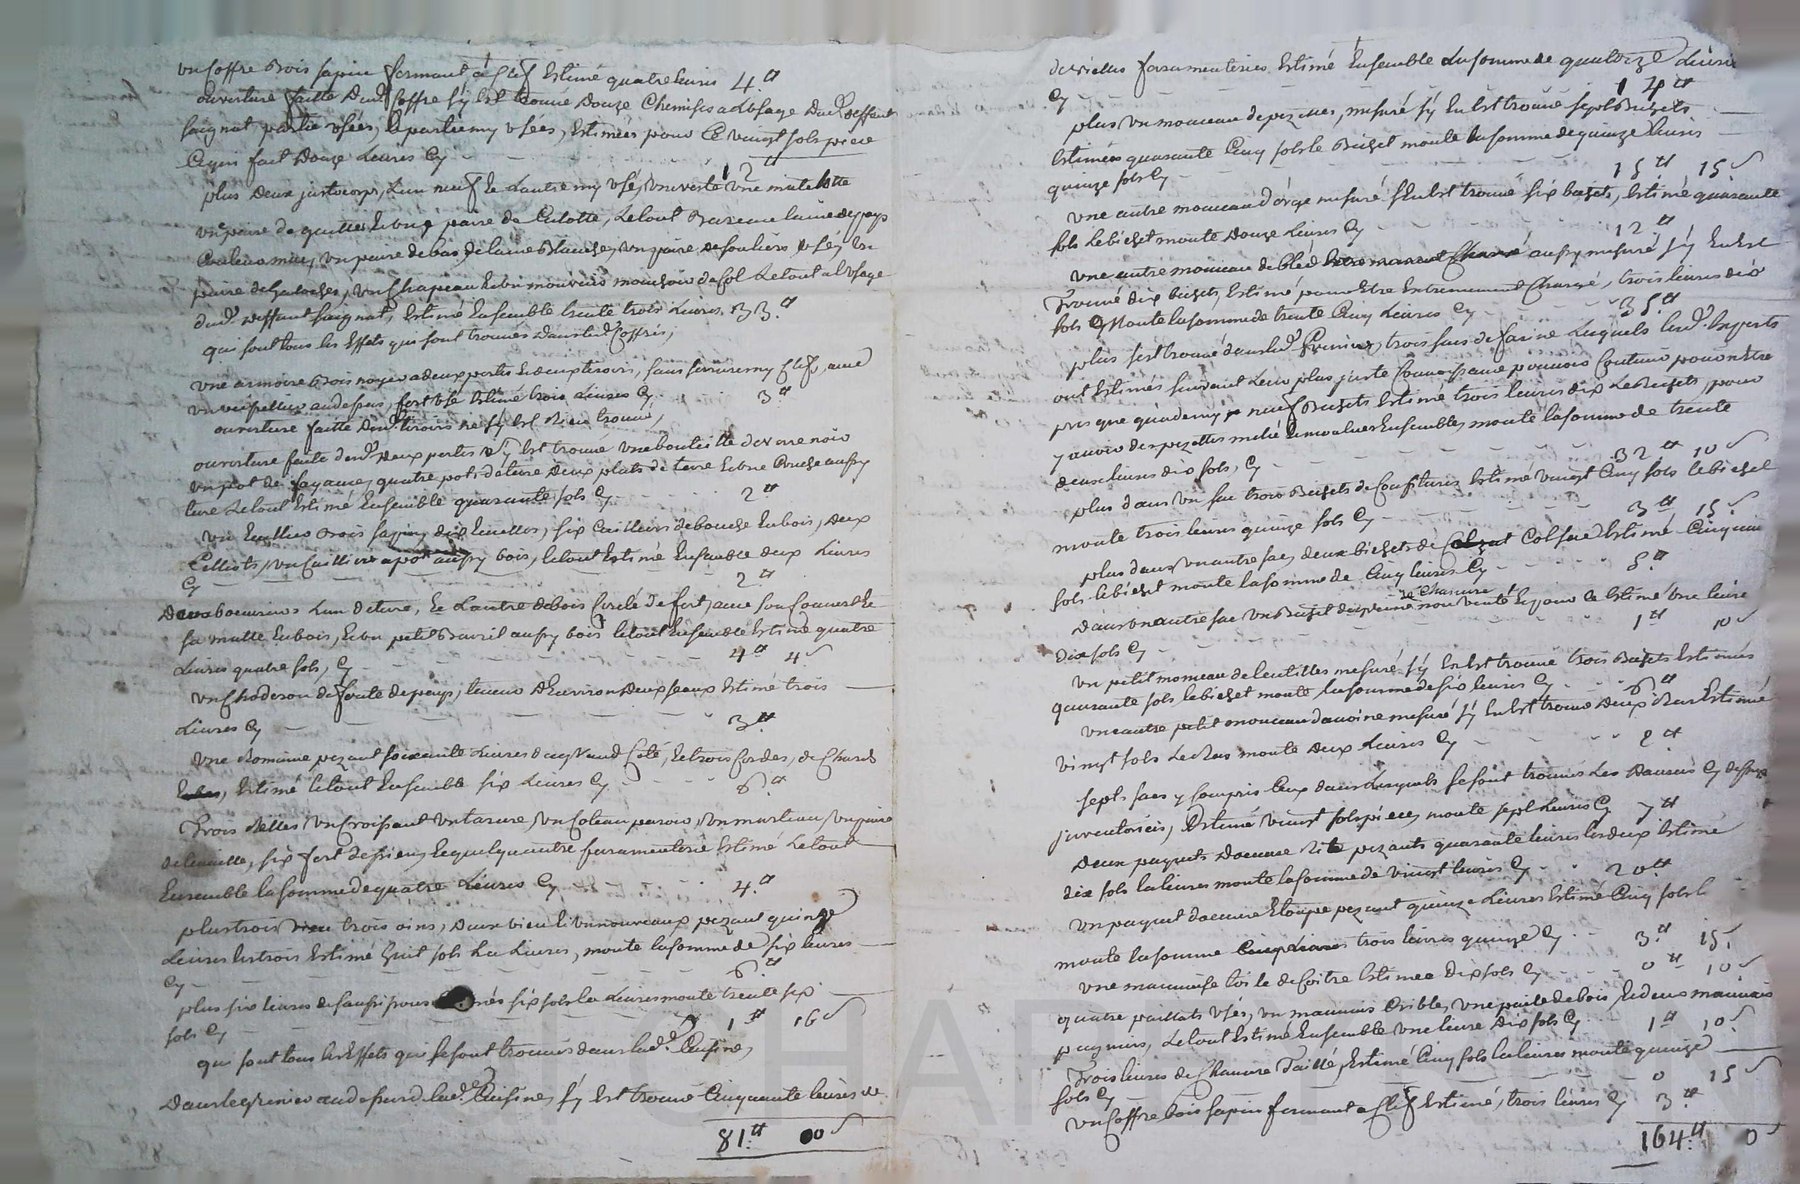 un Coffre Bois sapin fermant à Clef Estimé quatre livres 4 ₶
ouverture faitte Dud. Coffre sy Est trouvé Douze Chemises a Lusage Dud. deffunt
saignat, partie usées, Et partie my usées, Estimées pour Ce vingt sols piece
Cy qui fait Douze Livres Cy 12
plus Deux justecorps, Lun neuf Et Lautre my usé, une veste une matelotte
un paire de guettes Et une paire de Culotte, Le tout Laine du pays
un paire de bas de laine Blanche, un paire de souliers usés, un
paire de galoches, un Chapeau Et un mouchoir de Col Le tout a Lusage
dud. deffunt saignat, Estimé Ensemble trente trois Livres 33 ₶
qui sont tous les Effets qui sont trouvés Dans led. Coffre,
une armoire Bois noyer a deux portes Et deux tiroirs, sans serrure ny Clef, avec
un au dessus, fort usé Estimé trois Livres Cy 3 ₶
ouverture faitte Dud. tiroirs ne sy Est Rien trouvé,
ouverture faite des. Deux portes sy Est trouvé une bouteille de verre noir
un pot de fayance, quatre pots de terre Deux plats de terre Et une Cruche aussy
terre Le tout Estimé Ensemble quarante sols Cy 2 ₶
un Bois sappin dix Ecuelles, six Cuilliers de bouche En bois, Deux
un Cuilliere a pot aussy bois, le tout Estimé Ensemble deux Livres
Cy 2 ₶
Deux Lun de terre, Et Lautre de bois Cerclé de fert, avec son Couvert Et
sa En bois, Et un petit Barril aussy bois le tout Ensemble Estimé quatre
Livres quatre sols, Cy 4 ₶ 4 s
un Choderon de foute du pays, teneur D'Environ Deux seaux Estimé trois
Livres Cy 3 ₶
une Romaine pezant soixante Livres du grand Coté, Et trois Cordes, de Chards
Estimé le tout Ensemble six Livres Cy 6 ₶
Trois un Croissant un tarare, un Coteau paroir, un marteau, un paire
de tenaille, six fert de Et quelque autre faramenterie Estimé Le tout
Ensemble la somme de quatre Livres Cy 4 ₶
plus trois trois oires, deux vieux Et un nouveaux pezant quinze
Livres Les trois Estimé huit sols La Livre, monte la somme de six livres
Cy 6 ₶
plus six livres de six sols La Livre monte trente six
sols Cy 1 ₶ 16 s
qui sont tous les Effets qui se sont trouvés dans lad. Cuisine,
Dans le grenier au dessus de lad. Cuisine, sy Est trouvé Cinquante livres de
81 ₶ 00 s
de vielles faramenteries Estimé Ensemble La somme de quatorze Livres
Cy 14 ₶
plus un monceau de pezettes, mesuré sy En Est trouvé sept Bichets
Estimées quarante Cinq sols le Bichet monte la somme de quinze livres
quinze sols Cy 15 ₶ 15 s
une autre monceau d'orge mesuré s En Est trouvé six bichets, Estimé quarante
sols Le bichet monte Douze Livres Cy 12 ₶
une autre monceau de bled aussy mesuré sy En Est
Trouvé dix bichets Estimé pour Etre Entremement Chargé, trois livres dix
sols Cy Monte la somme de trente Cinq Livres Cy 35 ₶
plus sest trouvé dans led. Grenier, trois sacs de farine Lesquels lesd. Experts
ont Estimés suivant Leur plus juste Connoissance pouvoir Contenir pour Etre
pres que neuf Bichets Estimé trois livres dix Le bichet, pour
y avoir des pezettes mélé Ensemble, monte la somme de trente
deux livres dix sols, Cy 32 ₶ 10 s
plus dans un sac trois Bichets de Estimé vingt Cinq sols le bichet
monte trois livres quinze sols Cy 3 ₶ 15 s
plus dans un autre sac, deux bichets de Colsac Estimé Cinquante
sols le bichet monte la somme de Cinq livres Cy 5 ₶
de Chanvre
Dans une autre sac un Bichet non venté Et pour Ce Estimé une livre
Dix sols Cy 1 ₶ 10 s
un petit monceau de lentilles mesuré sy En Est trouvé trois Bichets Estimés
quarante sols le bichet monte la somme de six livres Cy 6 ₶
un autre petit monceau d'avoine mesuré sy En Est trouvé Deux Ras Estimé
vingt sols Le Ras monte Deux Livres Cy 2 ₶
sept sacs y Compris Ceux dans Lesquels se sont trouvés Les Danrées Cy dessus
inventoriées, Estimé vingt sols pièces monte sept Livres Cy 7 ₶
Deux paquets Doeuvre Rite pezants quarante livres les deux Estimé
dix sols la livre monte la somme de vingt livres Cy 20 ₶
un paquet doeuvre Etoupe pezant quinze Livres Estimé Cinq sols l
monte la somme trois livres quinze Cy 3 ₶ 15 s
une mauvaise toile de Estimée Dix sols Cy 0 ₶ 10 s
quatre paillats usés, un mauvais Crible, une paile de bois, Et deux mauvais
Le tout Estimé Ensemble une livre Dix sols Cy 1 ₶ 10 s
Trois livres de Chanvre Taillé, Estimé Cinq sols la livre monte quinze
sols Cy 0 15 s
un Coffre bois sapin fermant a Clef Estimé, trois livres Cy 3 ₶
164 ₶ 0 s